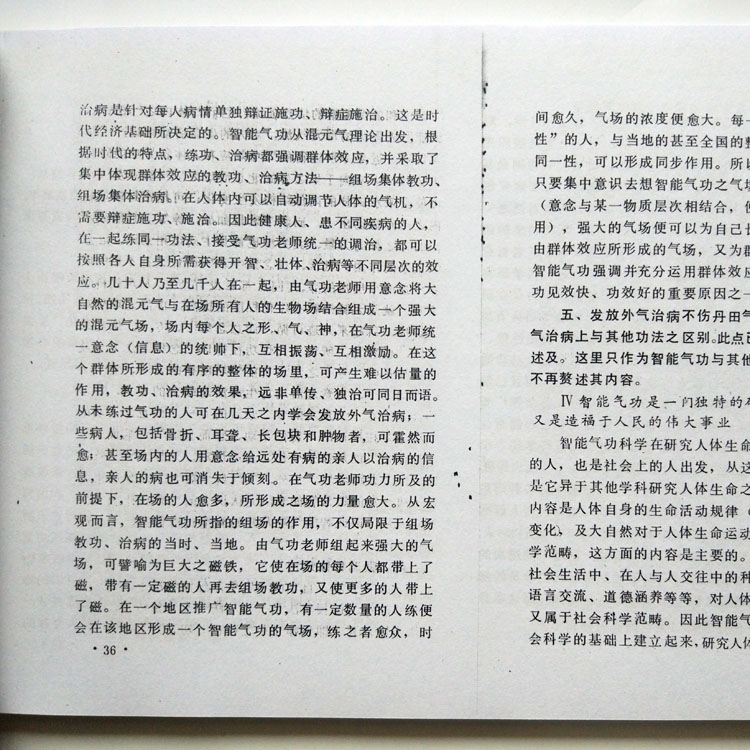 治病是针对每人病情单独辩证施功、辩症施治。这是时
代经济基础所决定的。智能气功从混元气理论出发，根
据时代的特点，练功、治病都强调群体效应，并采取了
集中体现群体效应的教功、治病方法——组场集体教功、
组场集体治病。在人体内可以自动调节人体的气机，不
需要辩症施功、施治。因此健康人、患不同疾病的人，
在一起练同一功法、接受气功老师统一的调治，都可以
按照各人自身所需获得开智、壮体、治病等不同层次的效
应。几十人乃至几千人在一起，由气功老师用意念将大
自然的混元气与在场所有人的生物场结合组成一个强大
的混元气场，场内每个人之形、气、神，在气功老师统
一意念（信息）的统帅下，互相振荡、互相激励。在这
个群体所形成的有序的整体的场里，可产生难以估量的
作用，教功、治病的效果，远非单传、独治可同日而语。
从未练过气功的人可在几天之内学会发放外气治病；一
些病人，包括骨折、耳聋、长包块和肿物者，可霍然而
愈；甚至场内的人用意念给远处有病的亲人以治病的信
息，亲人的病也可消失于倾刻。在气功老师功力所及的
前提下，在场的人愈多，所形成之场的力量愈大。从宏
观而言，智能气功所指的组场的作用，不仅局限于组场
教功、治病的当时、当地。由气功老师组起来强大的气
场，可譬喻为巨大之磁铁，它使在场的每个人都带上了
磁，带有一定磁的人再去组场教功，又使更多的人带上
了磁。在一个地区推广智能气功，有一定数量的人练便
会在该地区形成一个智能气功的气场，练之者愈众，时
·36·
间愈久，气场的浓度便愈大。每一
性”的人，与当地的甚至全国的整
同一性，可以形成同步作用。所以
只要集中意识去想智能气功之气场
（意念与某一物质层次相结合，便
用），强大的气场便可以为自己长
由群体效应所形成的气场，又为群
智能气功强调并充分运用群体效应
功见效快、功效好的重要原因之一
五、发放外气治病不伤丹田气
气治病上与其他功法之区别。此点已
述及。这里只作为智能气功与其他
不再赘述其内容。
Ⅳ智能气功是一门独特的
又是造福于人民的伟大事业
智能气功科学在研究人体生命
的人，也是社会上的人出发，从这
是它异于其他学科研究人体生命之
内容是人体自身的生命活动规律（
变化，及大自然对于人体生命运动
学范畴，这方面的内容是主要的。
社会生活中、在人与人交往中的种
语言交流、道德涵养等等，对人体
又属于社会科学范畴。因此智能气
会科学的基础上建立起来，研究人体